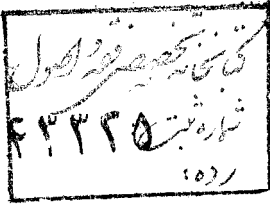 کتابخانه تخصصی فقه و اصول
شماره ثبت ۴۳۳۲۵
رده: